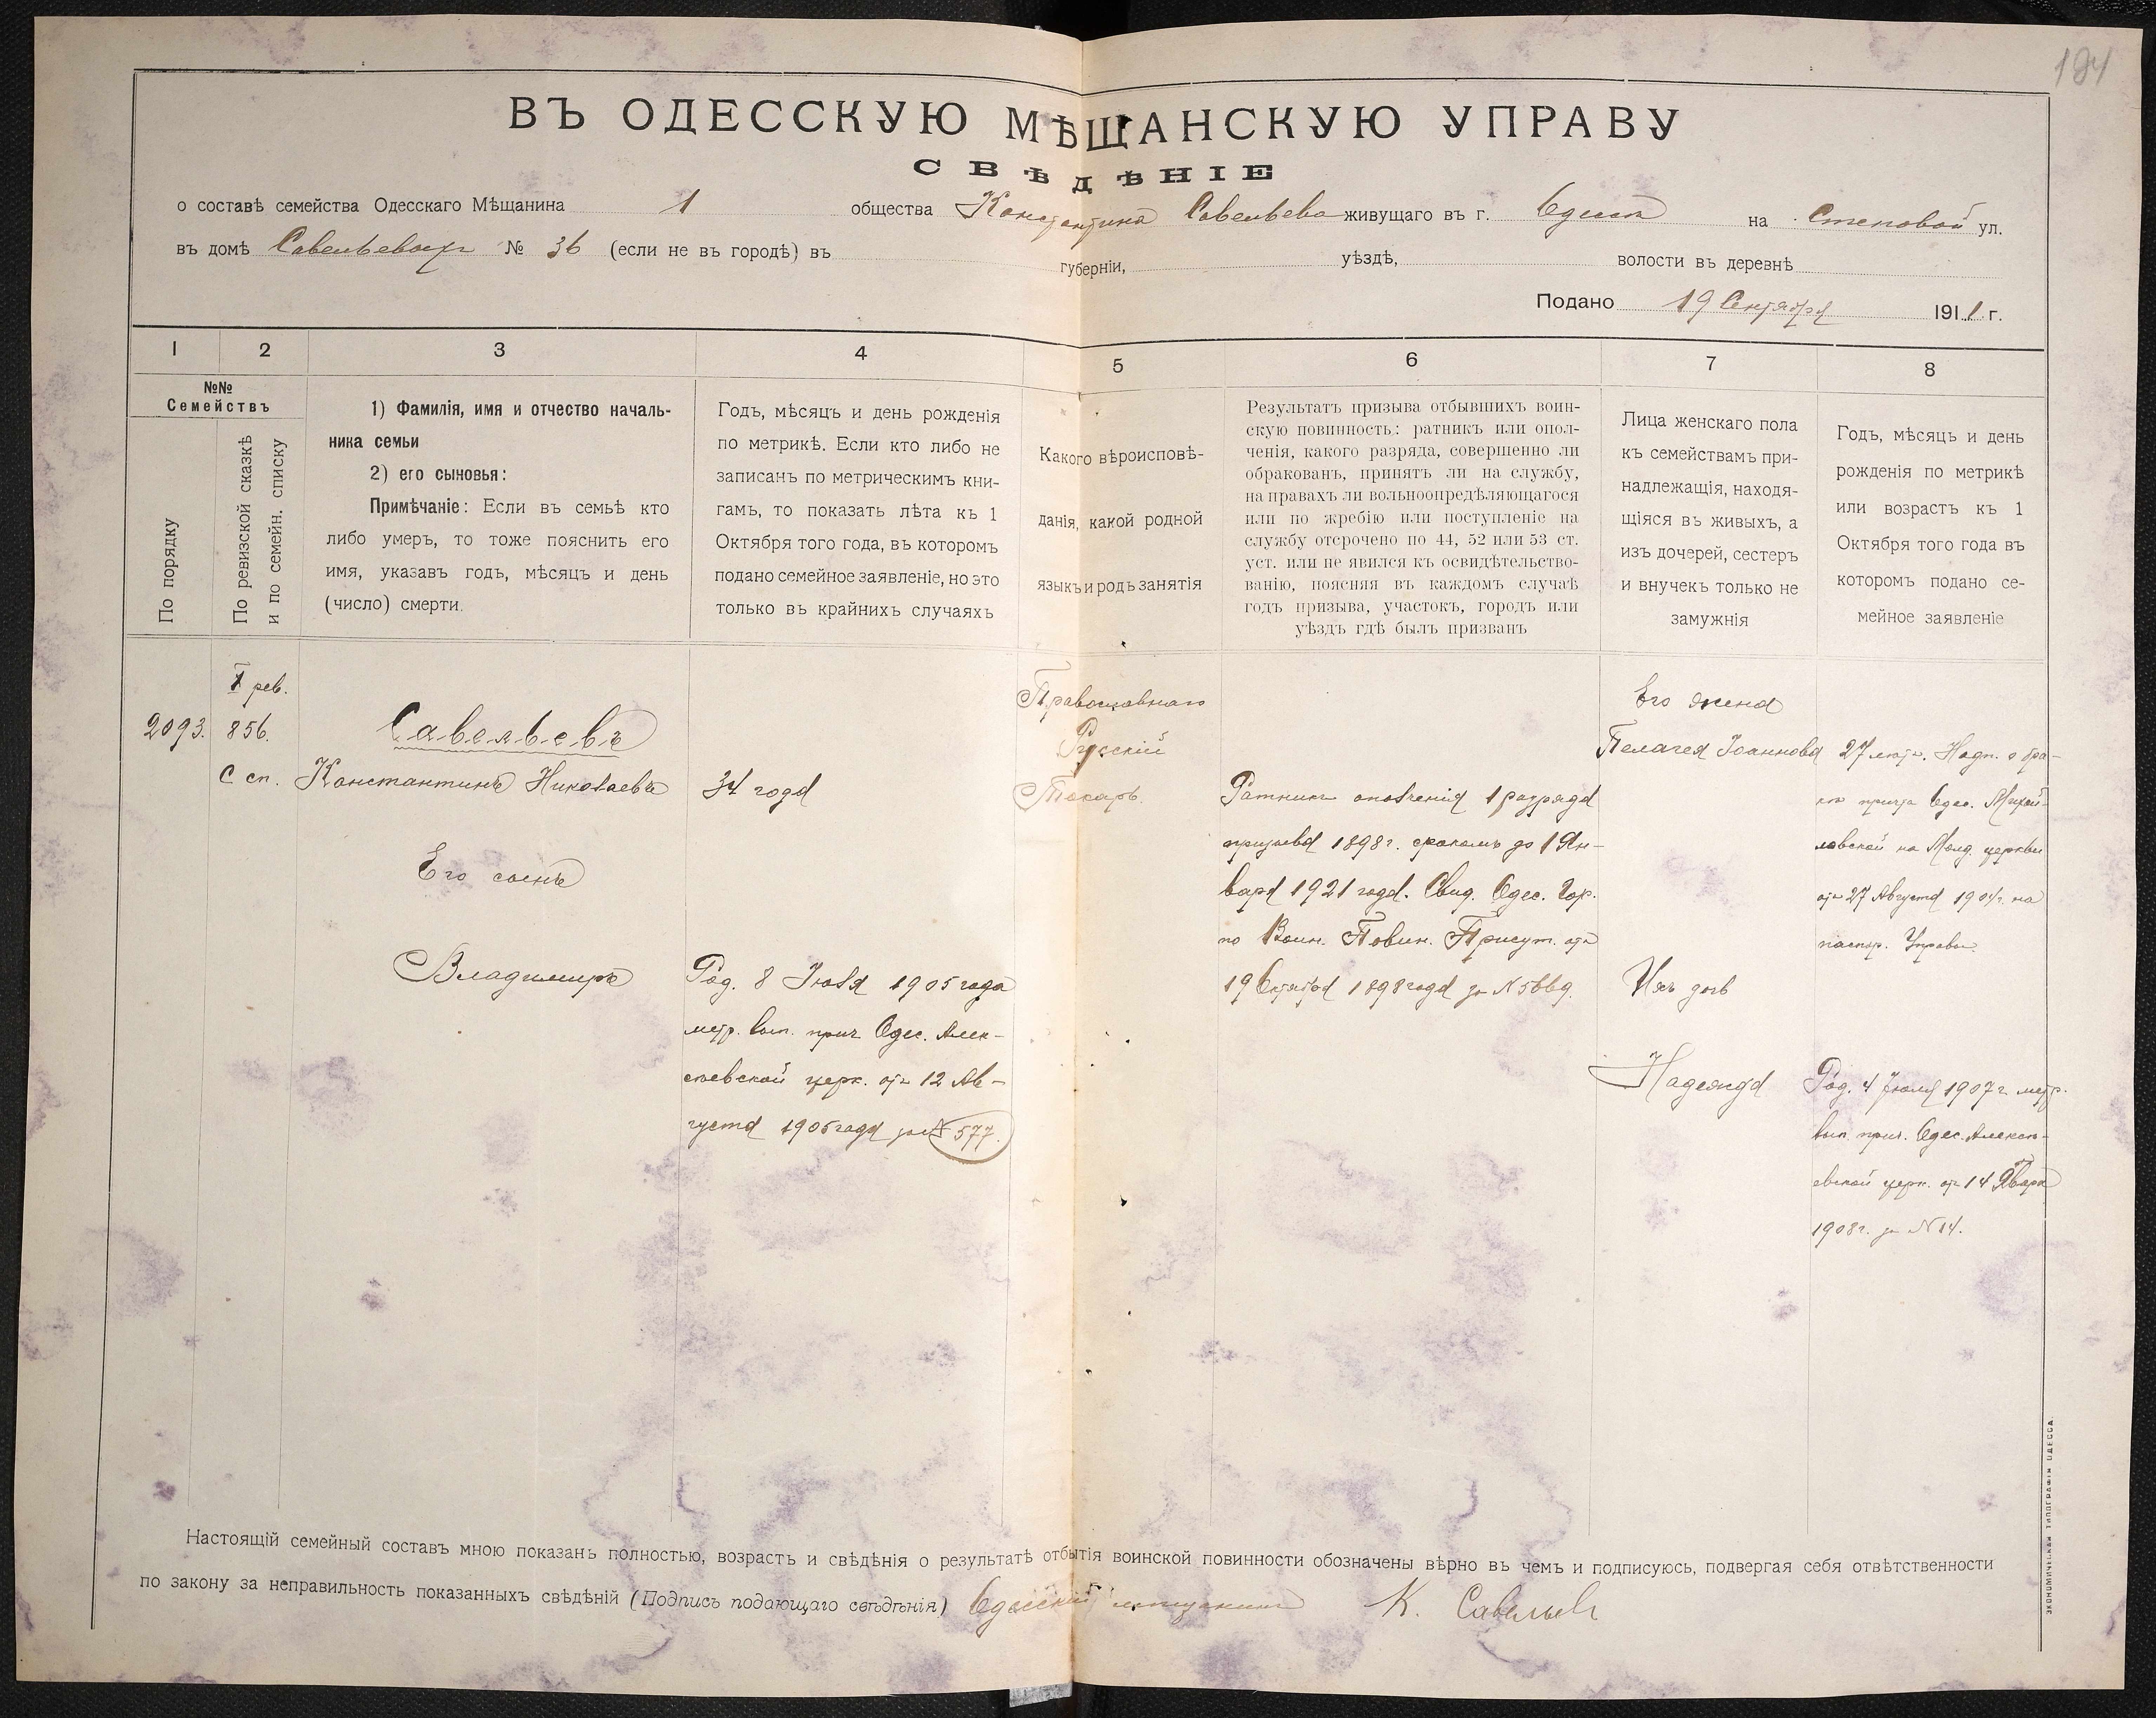 194
ВЪ ОДЕССКУЮ МѢЩАНСКУЮ УПРАВУ
СВѢДѢНІЕ
о составѣ семейства Одесскаго Мѣщанина 1 общества Константина Савельева живущаго въ г. Одессѣ на Степовой ул.
въ домѣ № 36 (если не въ городѣ) въ губерніи, уѣздѣ, волости въ деревнѣ
Подано 19 Сентября 1911 г.
1
2
3
4
5
6
7
8
№№
Семействъ
По порядку
По ревизской сказкѣ
и по семейн. списку
1) Фамилія, имя и отчество началь-
ника семьи
2) его сыновья:
Примѣчаніе: Если въ семьѣ кто
либо умеръ, то тоже пояснить его
имя, указавъ годъ, мѣсяцъ и день
(число) смерти.
Годъ, мѣсяцъ и день рожденія
по метрикѣ. Если кто либо не
записанъ по метрическимъ кни-
гамъ, то показать лѣта къ 1
Октября того года, въ которомъ
подано семейное заявленіе, но это
только въ крайнихъ случаяхъ
Какого вѣроисповѣ-
данія, какой родной
языкъ и родъ занятія
Результатъ призыва отбывшихъ воин-
скую повинность: ратникъ или опол-
ченія, какого разряда, совершенно ли
обракованъ, принятъ ли на службу,
на правахъ ли вольноопредѣляющагося
или по жребію или поступленіе на
службу отсрочено по 44, 52 или 53 ст.
уст. или не явился къ освидѣтельство-
ванію, поясняя въ каждомъ случаѣ
годъ призыва, участокъ, городъ или
уѣздъ гдѣ былъ призванъ
Лица женскаго пола
къ семействамъ при-
надлежащія, находя-
щіяся въ живыхъ, а
изъ дочерей, сестеръ
и внучекъ только не
замужнія
Годъ, мѣсяцъ и день
рожденія по метрикѣ
или возрастъ къ 1
Октября того года въ
которомъ подано се-
мейное заявленіе
рев.
2093. 856.
С сп.
Савельевъ
Константинъ Николаевъ
Его сынъ
Владимиръ
34 года
Род. 8 Іюля 1905 года
метр. вып. прич. Одес. Алек-
сѣевской церк. отъ 12 Ав-
густа 1905 года за № 577.
Православнаго
Русскій
Токарь.
Ратникъ ополченія 1 разряда
призыва 1898 г. срокомъ до 1 Ян-
варя 1921 года. Свид. Одес. Гор.
по Воин. Повин. Присут. отъ
19 Октября 1898 года за №
Его жена
Пелагея Іоаннова
Ихъ дочь
Надежда
27 лѣтъ. Надп. о бра-
кѣ причта Одес. Михай-
ловской на Молд. церкви
отъ 27 Августа 1904 г. на
паспор. Управы
Род. 4 Іюля 1907 г. метр.
вып. прич. Одес. Алексѣ-
евской церк. отъ 14 Января
1908 г. за № 14.
Настоящій семейный составъ мною показанъ полностью, возрастъ и свѣдѣнія о результатѣ отбытія воинской повинности обозначены вѣрно въ чемъ и подписуюсь, подвергая себя отвѣтственности
по закону за неправильность показанныхъ свѣдѣній (Подпись подающаго свѣдѣнія) Одесскій мѣщанинъ К. Савельевъ
ЭКОНОМИЧЕСКАЯ ТИПОГРАФІЯ ОДЕССА.